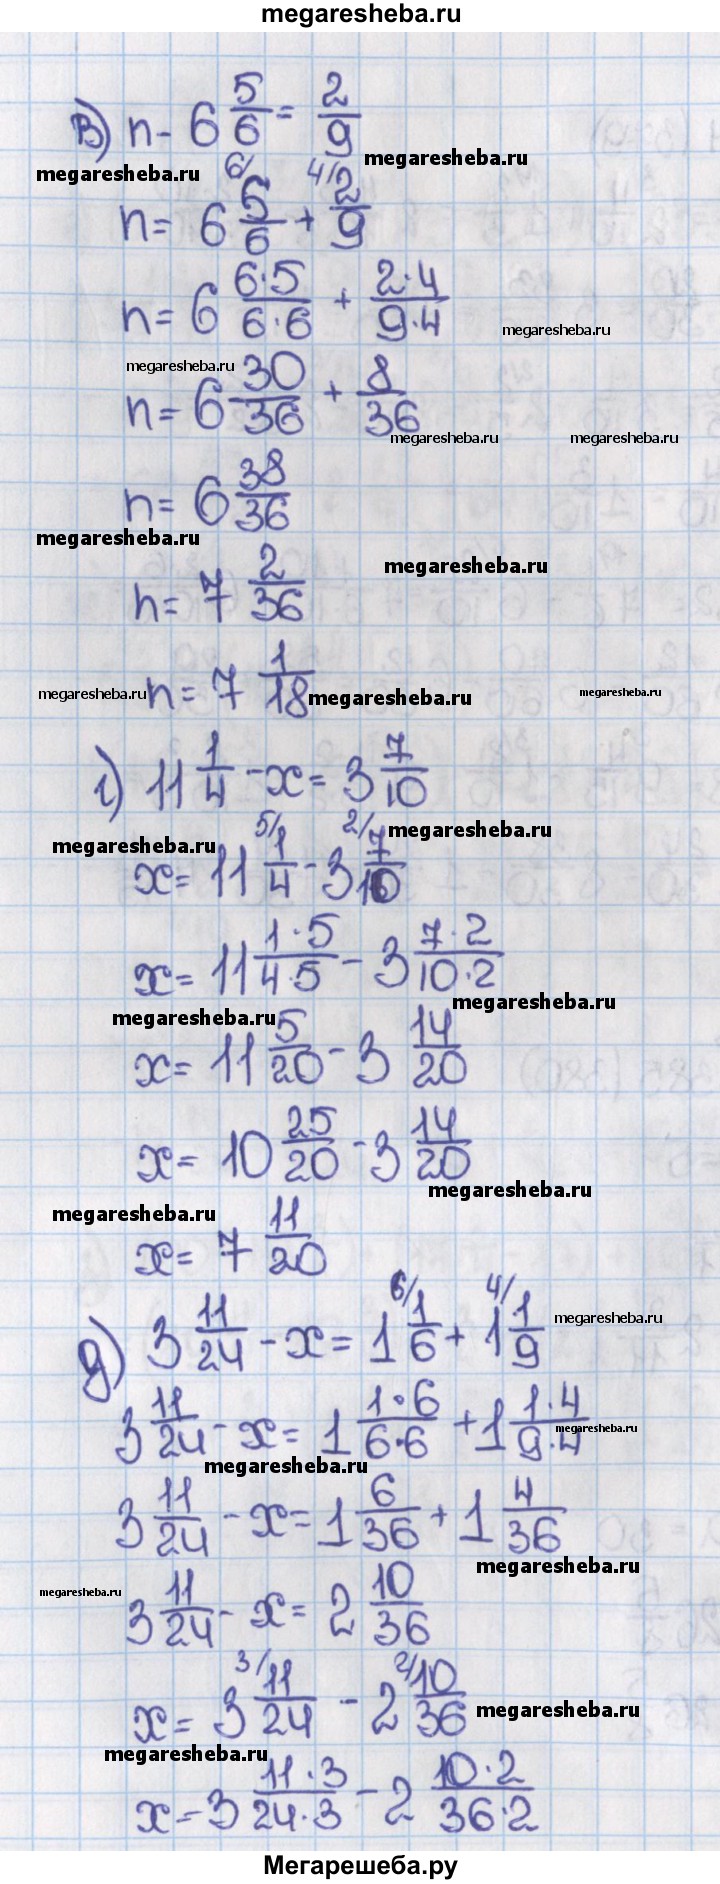 megaresheba.ru
в) n - 6 5/6 = 2/9
megaresheba.ru
megaresheba.ru
n = 6 6/ 5/6 + 4/ 2/9
n = 6 6·5/6·6 + 2·4/9·4
megaresheba.ru
megaresheba.ru
n = 6 30/36 + 8/36
megaresheba.ru megaresheba.ru
n = 6 38/36
megaresheba.ru
megaresheba.ru
n = 7 2/36
megaresheba.ru n = 7 1/18 megaresheba.ru megaresheba.ru
г) 11 1/4 - x = 3 7/10
megaresheba.ru
megaresheba.ru
x = 11 5/ 1/4 - 3 2/ 7/10
x = 11 1·5/4·5 - 3 7·2/10·2
megaresheba.ru
megaresheba.ru
x = 11 5/20 - 3 14/20
x = 10 25/20 - 3 14/20
megaresheba.ru
megaresheba.ru
x = 7 11/20
д) 3 11/24 - x = 1 6/ 1/6 + 1 4/ 1/9
megaresheba.ru
3 11/24 - x = 1 1·6/6·6 + 1 1·4/9·4
megaresheba.ru
megaresheba.ru
3 11/24 - x = 1 6/36 + 1 4/36
megaresheba.ru
megaresheba.ru
3 11/24 - x = 2 10/36
x = 3 3/ 11/24 - 2 2/ 10/36
megaresheba.ru
megaresheba.ru
x = 3 11·3/24·3 - 2 10·2/36·2
Мегарешеба.ру